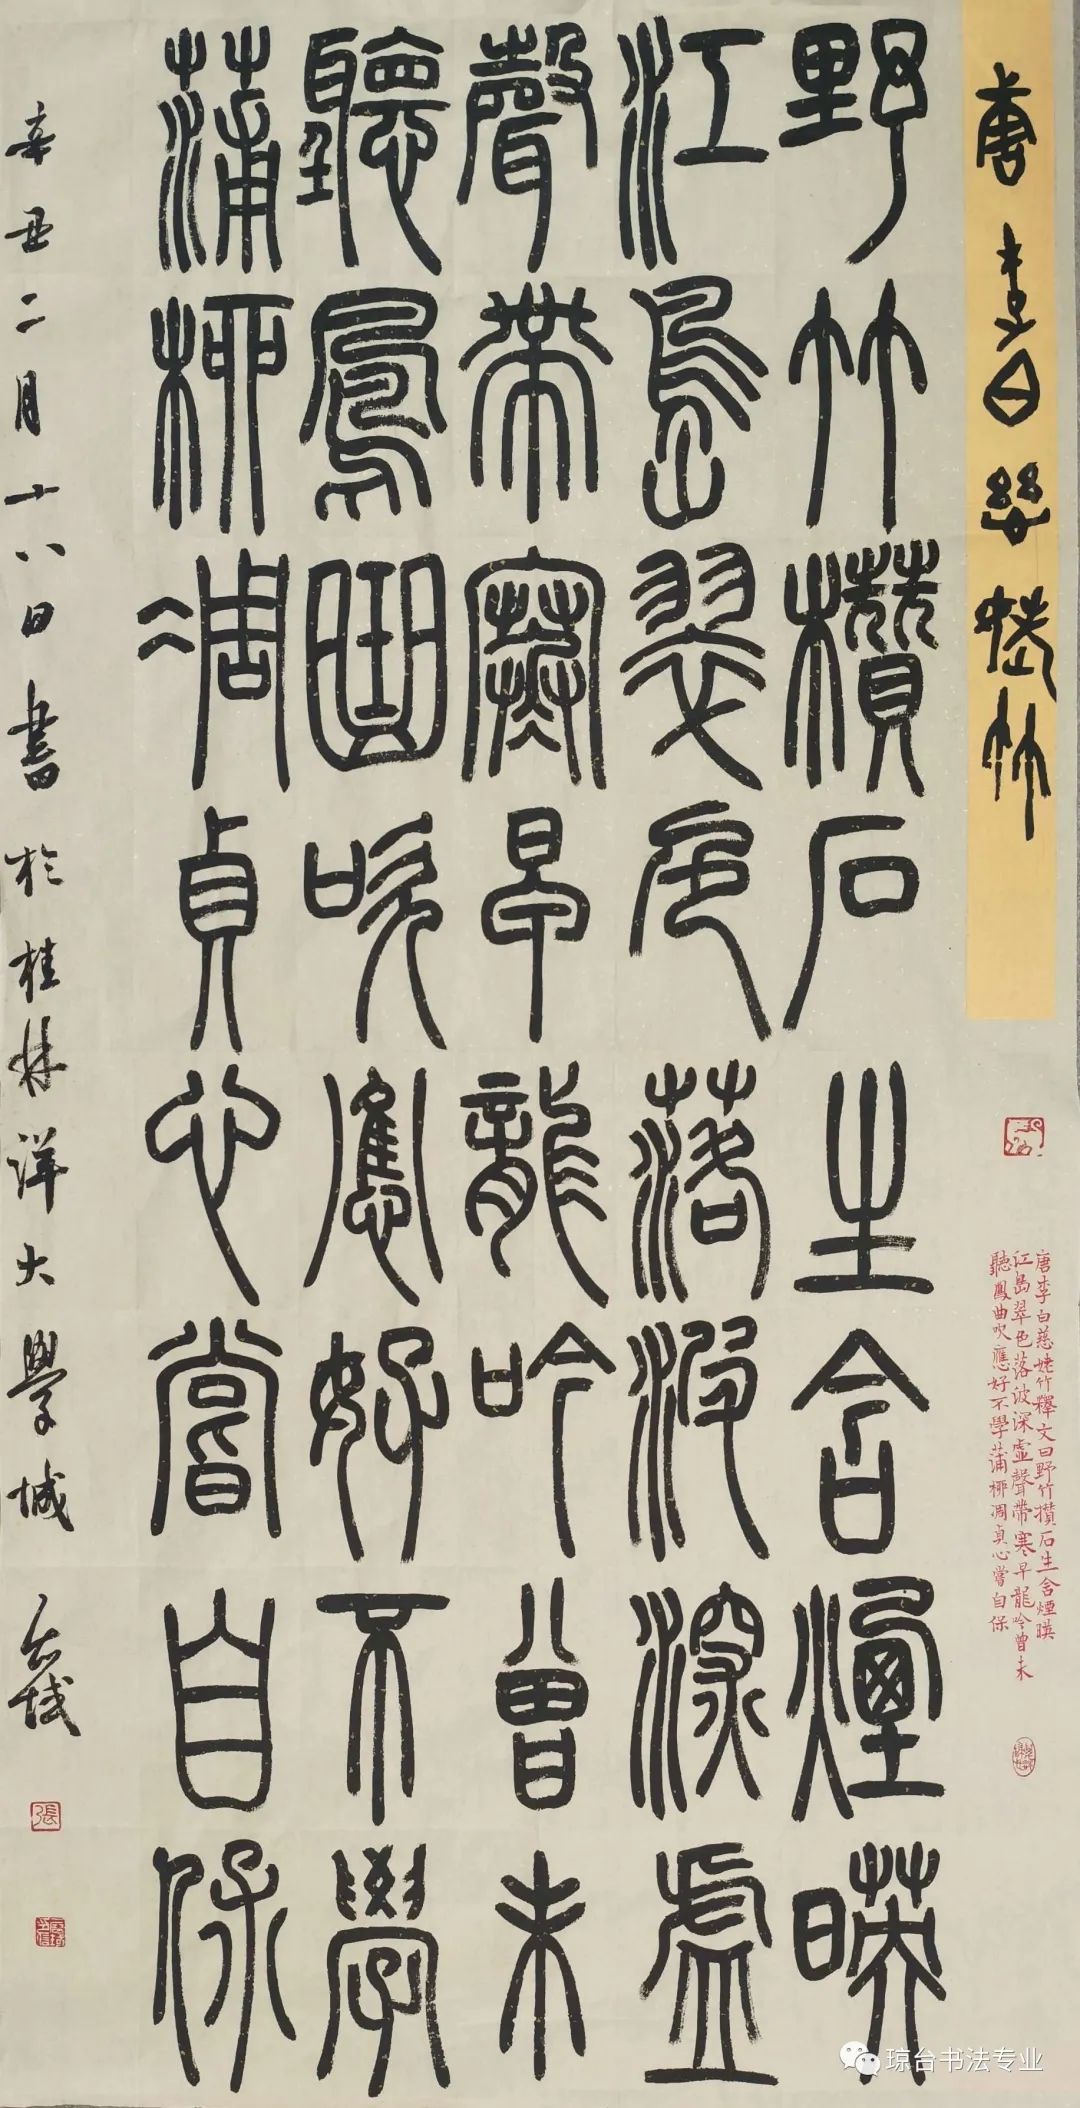 唐李白慈姥竹
野竹攢石生含煙暎
江島翠色落波深虛
聲帶寒早龍吟曾未
聽鳳曲吹應好不學
蒲柳凋貞心嘗自保
唐李白慈姥竹釋文曰野竹攢石生含煙暎
江島翠色落波深虛聲帶寒早龍吟曾未
聽鳳曲吹應好不學蒲柳凋貞心嘗自保
辛丑二月十八日書於桂林洋大學城
張
琼台书法专业